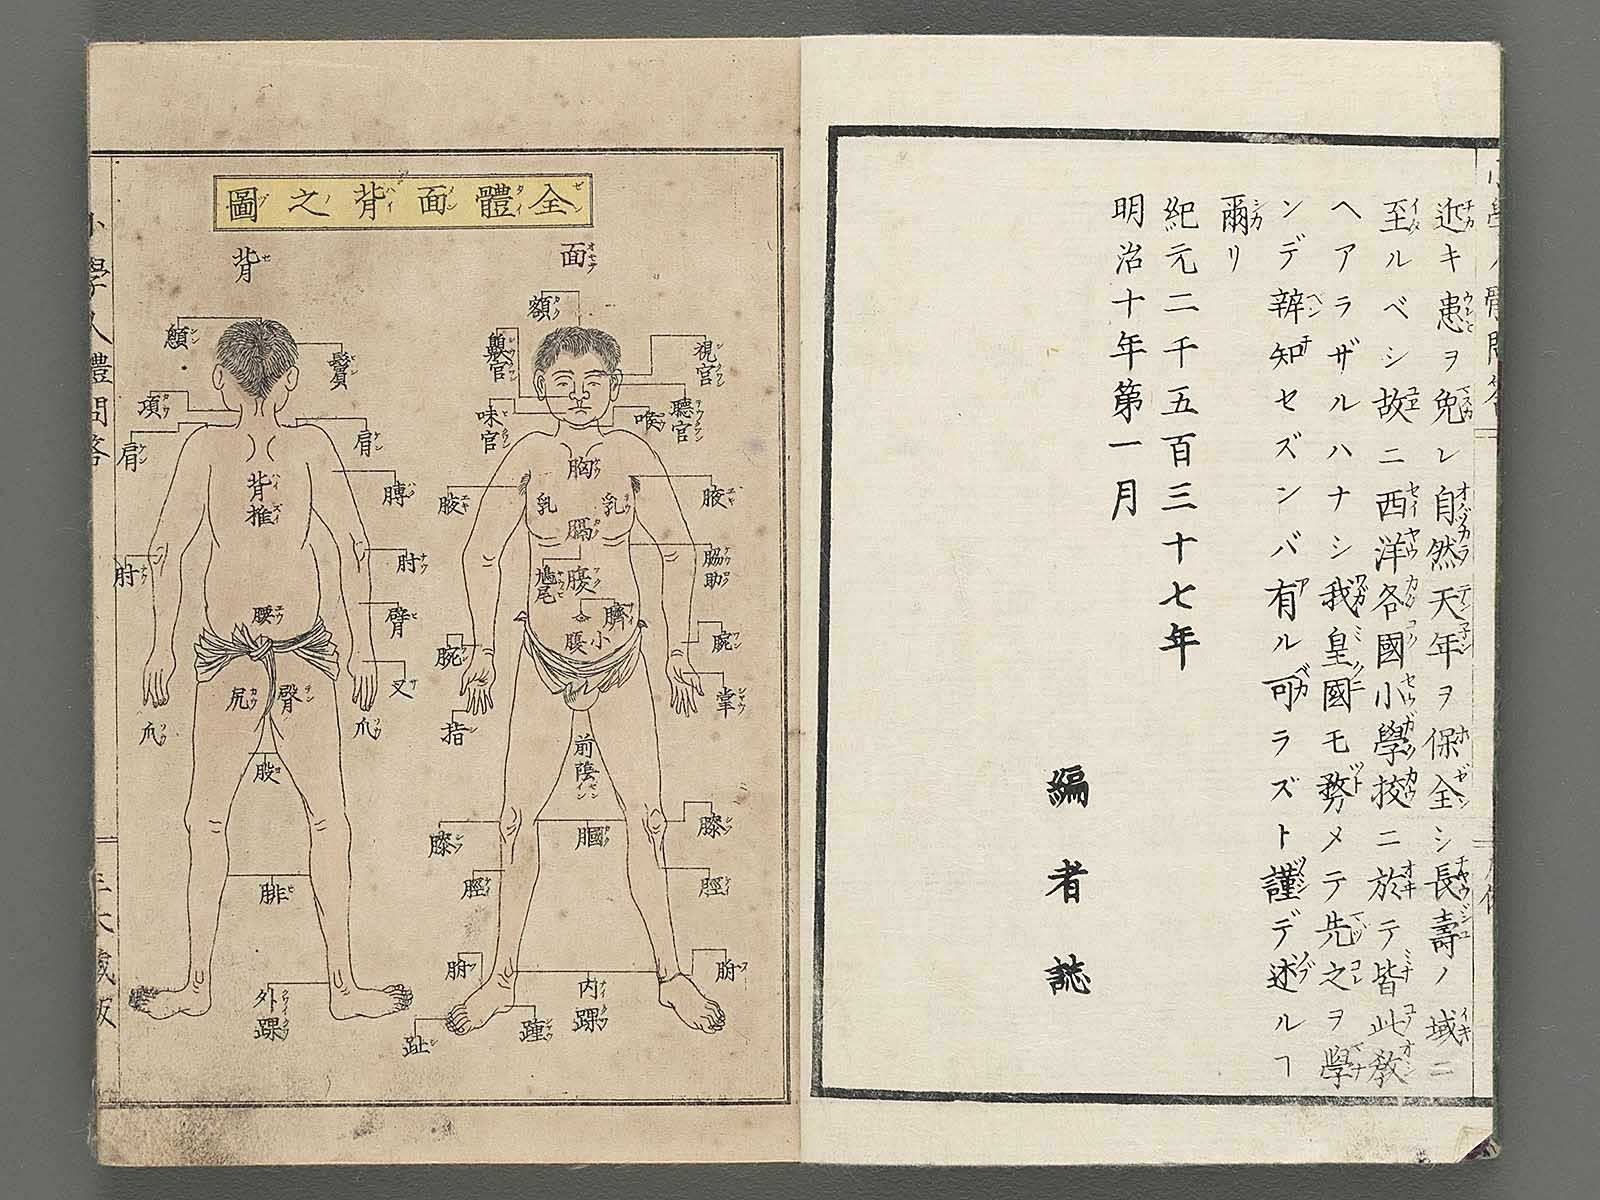 近キ患ヲ免レ自然天年ヲ保全シ長壽ノ域ニ
至ルベシ故ニ西洋各國小學校ニ於テ皆此教
ヘアラザルハナシ我皇國モ務メテ先之ヲ學
ンデ辨知セズンバ有ル可ラズト謹デ述ルヿ
爾リ
紀元二千五百三十七年
明治十年第一月
編者誌
全體面背之圖
面
額
視官
嗅官
聽官
味官
喉
胸
腋
腋
乳
乳
膈
脇肋
鳩尾
腹
臍
小腹
腕
腕
掌
指
前陰
膝
膝
膕
脛
脛
内踝
踵
趾
背
顖
鬢
項
肩
肩
膊
背椎
肘
肘
腰
臂
叉
尻
臀
爪
爪
股
腓
外踝
小學人體問答